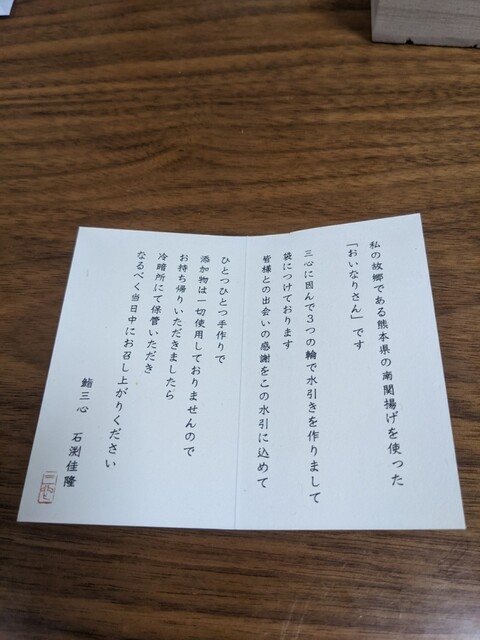 私の故郷である熊本県の南関揚げを使った
「おいなりさん」です
三心に因んで３つの輪で水引きを作りまして
袋につけております
皆様との出会いの感謝をこの水引に込めて
ひとつひとつ手作りで
添加物は一切使用しておりませんので
お持ち帰りいただきましたら
冷暗所にて保管いただき
なるべく当日中にお召し上がりください
鮨三心　石渕佳隆